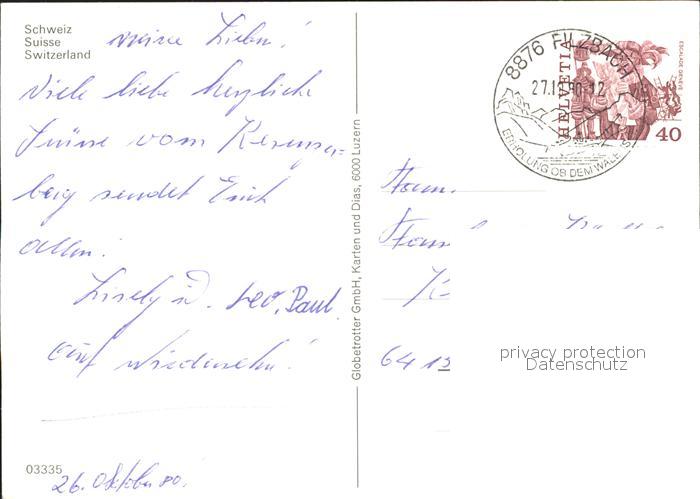 Schweiz
Suisse
Switzerland
meine Lieben!
Viele liebe herzliche
Grüsse vom Kerenzer=
berg sendet Euch
allen.
Lisely u. Leo, Paul
auf Wiedersehn!
03335
26. Oktober 80.
Globetrotter GmbH, Karten und Dias, 6000 Luzern
8876 FILZBACH
ERHOLUNG OB DEM WALENSEE
HELVETIA
ESCALADE GENÈVE
40
Fam.
Fam
6413
privacy protection
Datenschutz